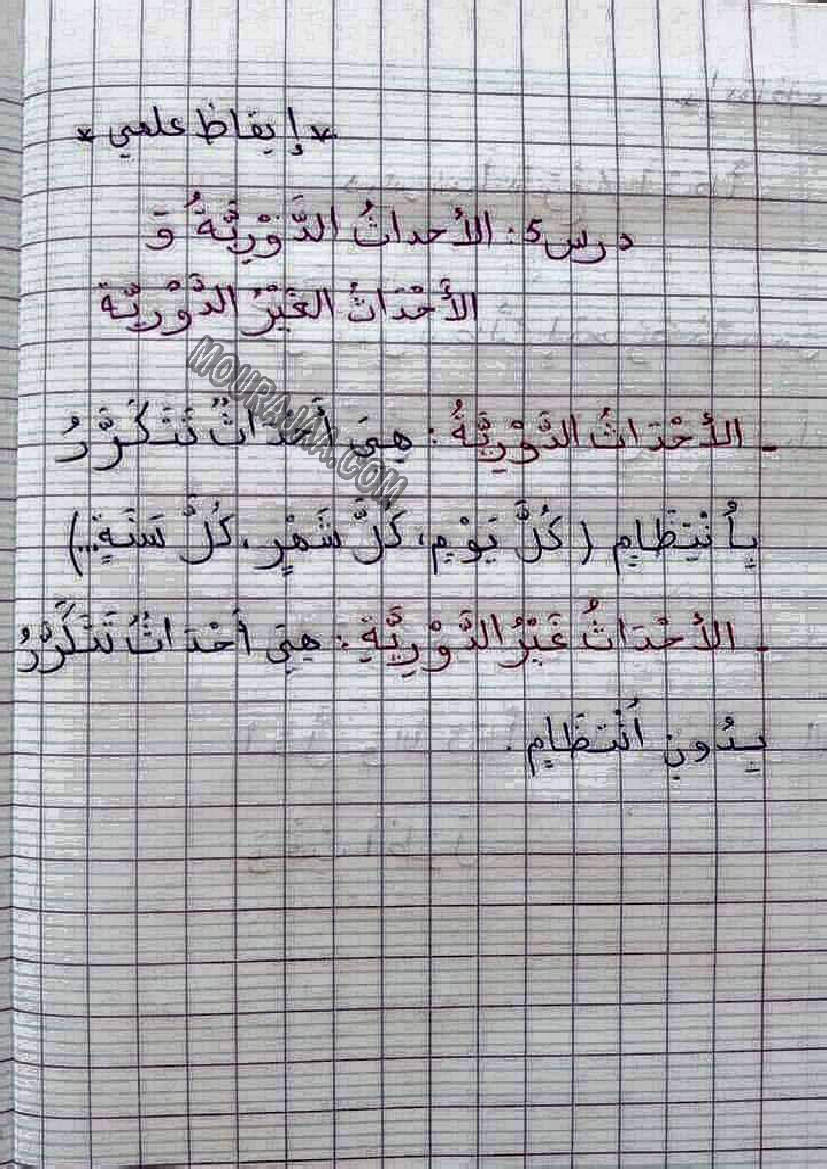 * إيقاظ علمي *
درس 5: الأحداثُ الدَّوْرِيَّةُ وَ
الأَحْدَاثُ الغَيْرُ الدَّوْرِيَّة
MOURAJAA.COM
- الأَحْدَاثُ الدَّوْرِيَّةُ: هِيَ أَحْدَاثٌ تَتَكَرَّرُ
بِأنْتِظَامٍ (كُلَّ يَوْمٍ، كُلَّ شَهْرٍ، كُلَّ سَنَةٍ...)
- الأَحْدَاثُ غَيْرُ الدَّوْرِيَّةِ: هِيَ أَحْدَاثٌ تَتَكَرَّرُ
بِدُونِ أنْتِظَامٍ.